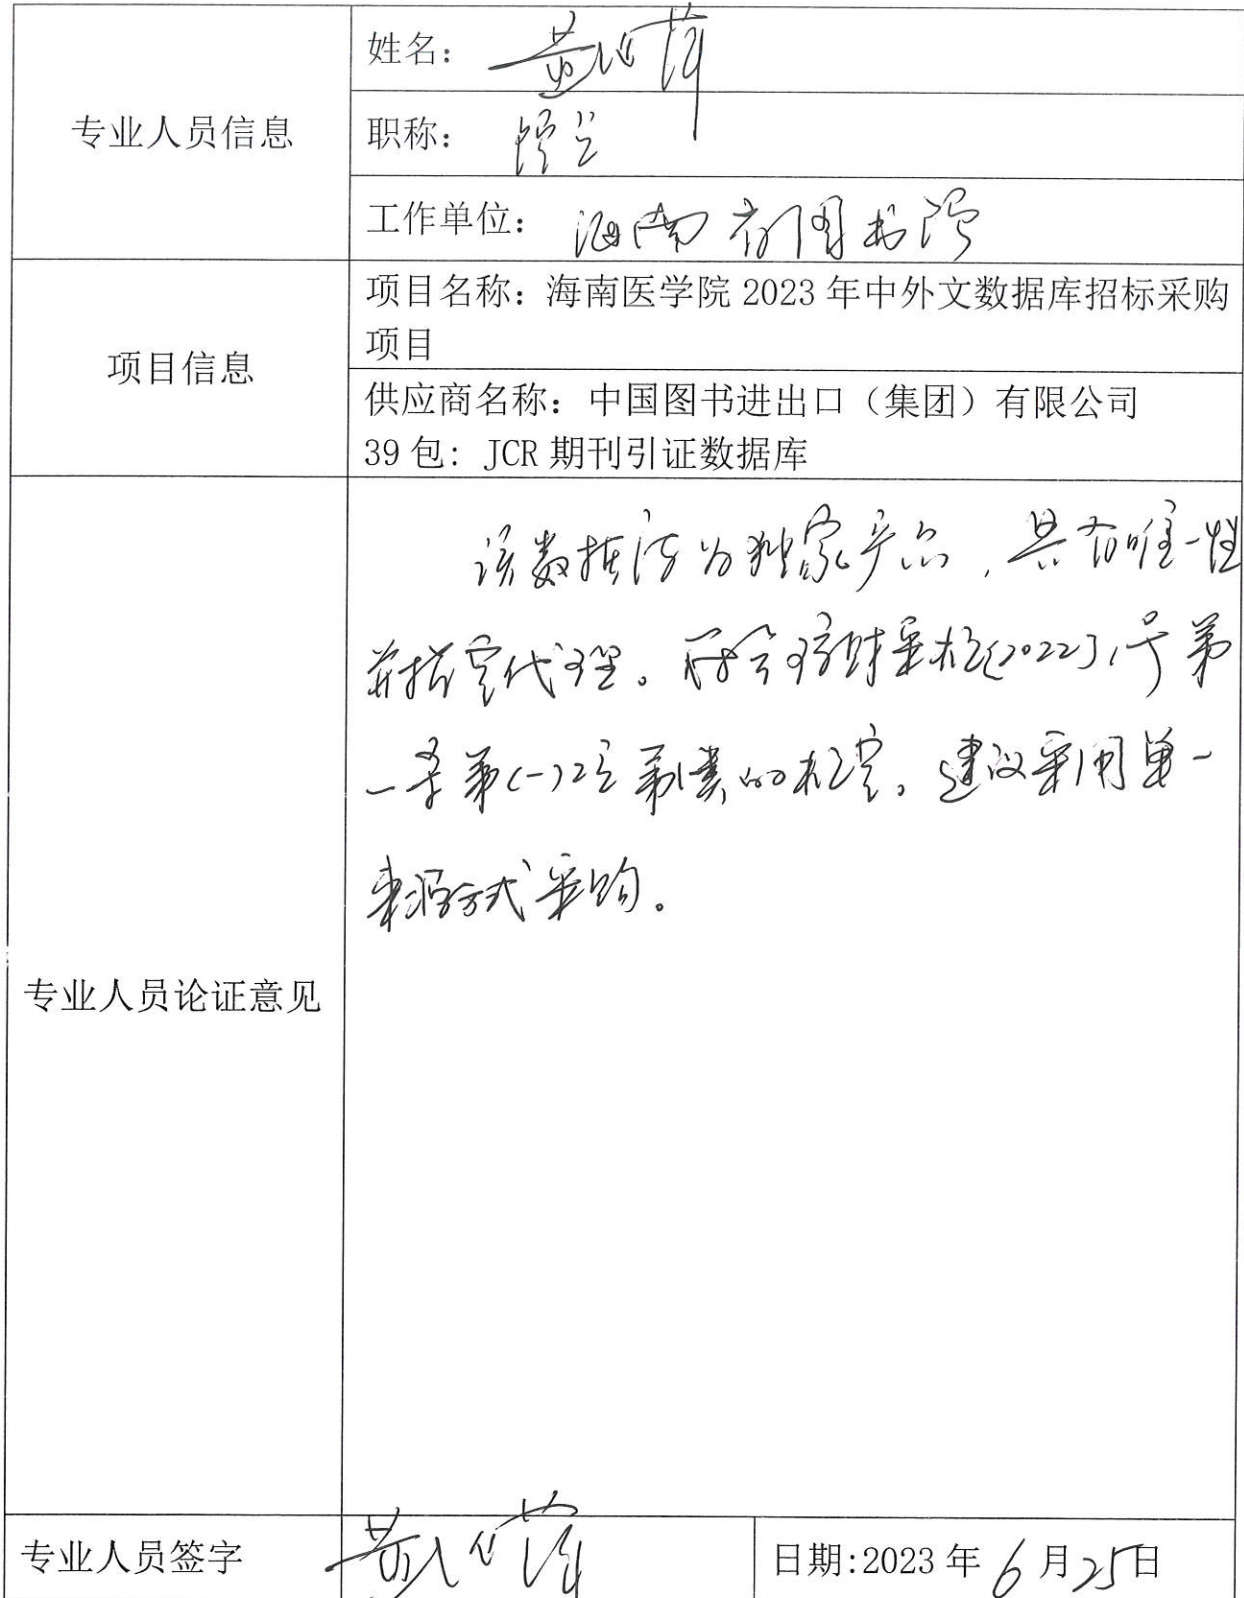 专业人员信息
姓名：黄
职称：馆员
工作单位：海南省图书馆
项目信息
项目名称：海南医学院 2023 年中外文数据库招标采购
项目
供应商名称：中国图书进出口（集团）有限公司
39 包：JCR 期刊引证数据库
专业人员论证意见
该数据库为独家产品，具有唯一性
并指定代理。符合琼财采规[2022]1号第
一条第(一)项第1类的规定。建议采用单一
来源方式采购。
专业人员签字 黄
日期:2023 年 6 月 25 日